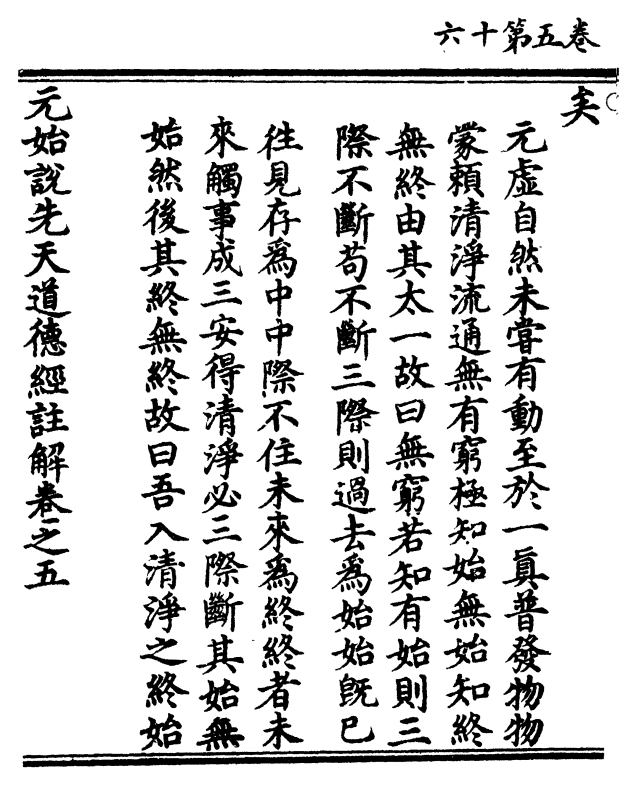 卷五第十六
矣
元虛自然未嘗有動至於一真普發物物
蒙賴清淨流通無有窮極知始無始知終
無終由其太一故曰無窮若知有始則三
際不斷苟不斷三際則過去為始始既已
往見存為中中際不住未來為終終者未
來觸事成三安得清淨必三際斷其始無
始然後其終無終故曰吾入清淨之終始
元始說先天道德經註解卷之五